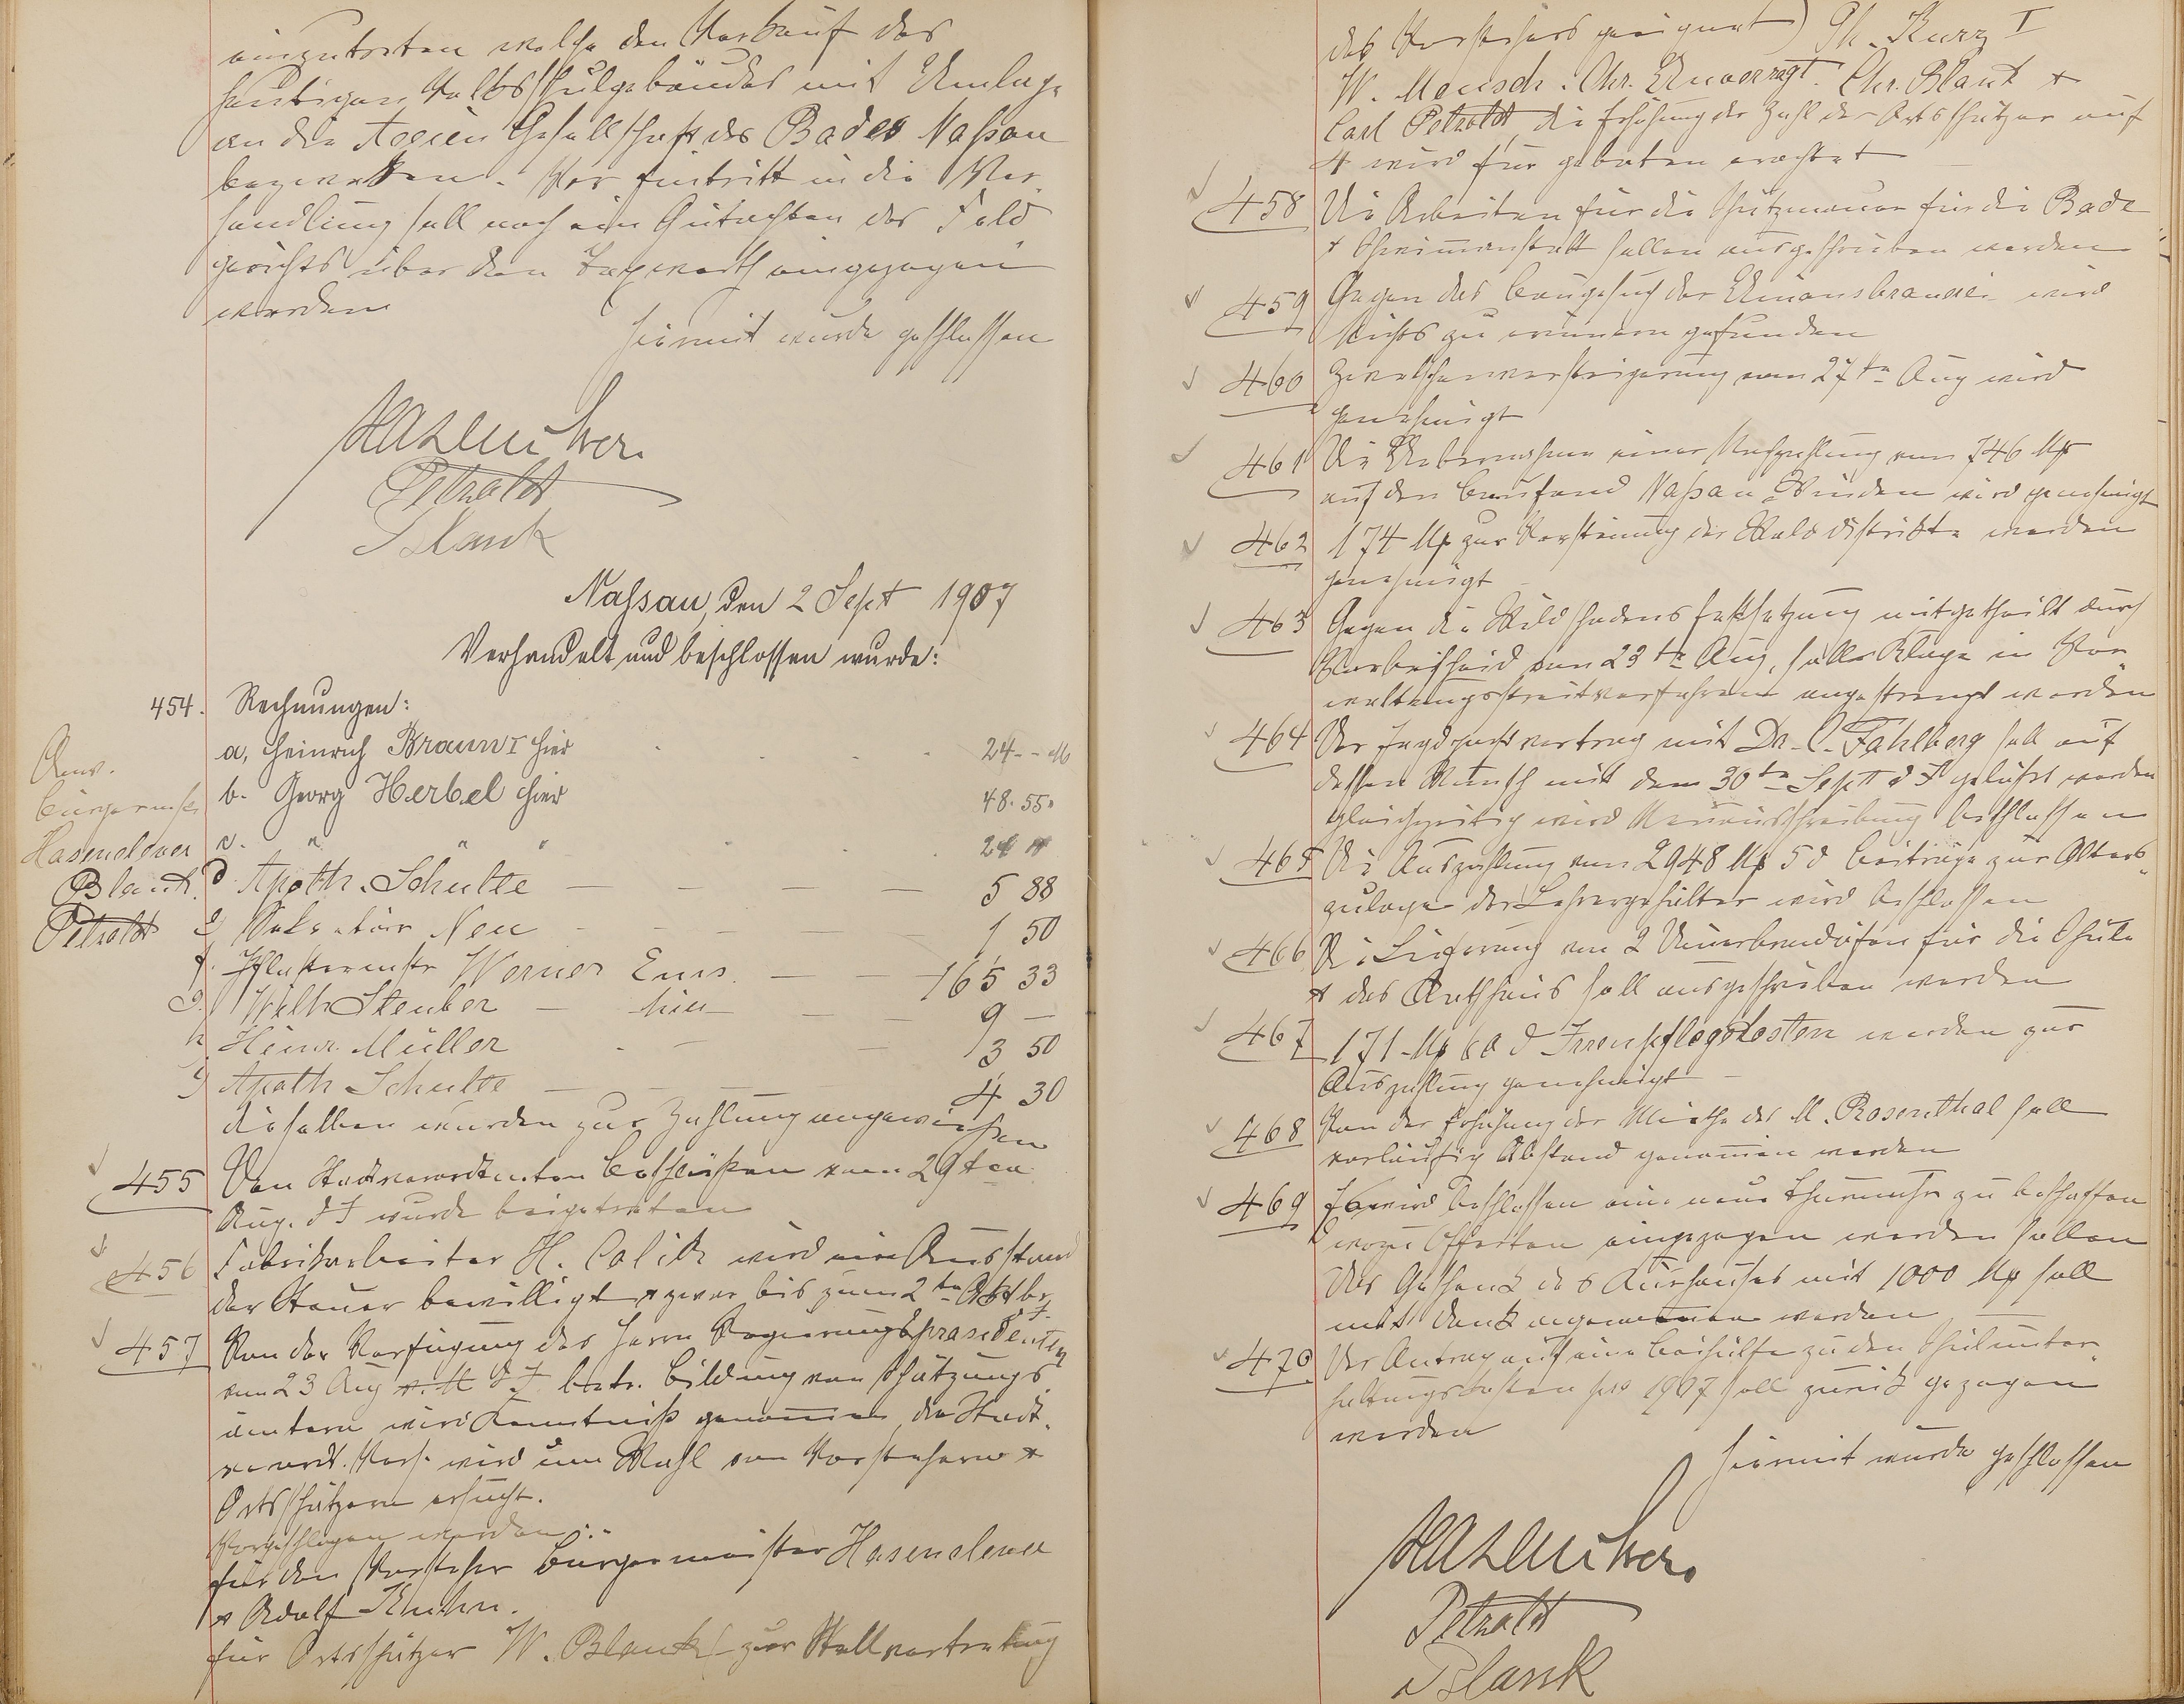 einzutreten welche den Verkauf des
heutigen Volksschulgebäudes mit Umlage
an die Actien Gesellschaft des Bades Naßau
bezwecken. Vor Eintritt in die Ver-
handlung soll noch ein Gutachten des Feld
gerichts über den Taxwerth eingezogen
werden
Hiermit wurde geschlossen
Hasenclever.
Petzoldt
Blank
Naßau, den 2 Sept 1907
Verhandelt und beschlossen wurde:
454. Rechnungen:
Anw.
Bürgermstr
Hasenclever
Blank.
Petzoldt
a, Heinrich Braun I hier 24 - - M
b. Georg Herbel hier 48. 55.
c. " " " 24
d Apoth. Schulte 5 88
e Sekretär Neu 1 50
f. Pflastermstr Werner Ems. 165 33
g. Wilh Steuber hier 9 —
h. Heinr. Müller 3 50
Apoth Schulte 4 30
dieselben wurden zur Zahlung angewießen
455 Den Stadtverordneten Beschlüßen vom 29ten
Aug. d J wurde beigetreten
456 Fabrikarbeiter H. wird ein Ausstand
der Steuer bewilligt & zwar bis zum 2ten Oktbr
d J.
457 Von der Verfügung des Herrn Regierungspräsidenten
vom 23 Aug v. M d. J. betr. Bildung von Schätzungs-
ämtern wird Kenntniß genommen, die Stadt-
verordt. Vers. wird um Wahl von Vorstehern &
Ortsschätzern ersucht.
Vorgeschlagen werden:
für den Vorsteher Bürgermeister Hasenclever
& Adolf Kuhn.
für Ortsschätzer W. Blank (zur Stellvertretung
des Vorstehers geeignet) Ph. Kurz I
W. Mensch. Chr. Unverzagt. Chr. Blank &
Carl Petzoldt, die Erhöhung der Zahl der Ortsschätzer auf
4 wird für geboten erachtet
458 Die Arbeiten für die Schutzmauer für die Bade
& Schwimmanstalt sollen ausgeschrieben werden
459 Gegen das Baugesuch der Unionsbrauerei wird
Nichts zu erinnern gefunden
460 Zwetschenversteigerung vom 27ten Aug wird
genehmigt
461 Die Uebernahme einer Nachzahlung von 746 Mk
auf den Baufond Naßau Winden wird genehmigt
462 174 Mk zur Versteinung der Walddistrikte werden
genehmigt
463 Gegen die Wildschadens festsetzung mitgetheilt durch
Vorbescheid vom 23ten Aug, soll Klage im Ver-
waltungsstreitverfahren angestrengt werden
464 Der Jagdpachtvertrag mit Dr. C. Fahlberg soll auf
dessen Wunsch mit dem 30ten Sept d J gelöst werden
gleichzeitig wird Neuausschreibung beschlossen
465 Die Auszahlung von 2948 Mk 50 Beiträge zur Alters-
zulage der Lehrergehälter wird beschlossen
466 Die Lieferung von 2 Dauerbrandöfen für die Schule
& das Rathhaus soll ausgeschrieben werden
467 171 Mk 60 d Irrenpflegekosten werden zur
Auszahlung genehmigt
468 Von der Erhöhung der Miethe des M. Rosenthal soll
vorläufig Abstand genommen werden
469 Es wird beschlossen eine neue Thurmuhr zu beschaffen
wozu Offerten eingezogen werden sollen
Das Geschenk des Kurhauses mit 1000 Mk soll
mit Dank angenommen werden
470 Der Antrag auf eine Beihülfe zu den Schulunter-
haltungskosten pro 1907 soll zurück gezogen
werden
Hiermit wurde geschlossen
Hasenclever.
Petzoldt
Blank